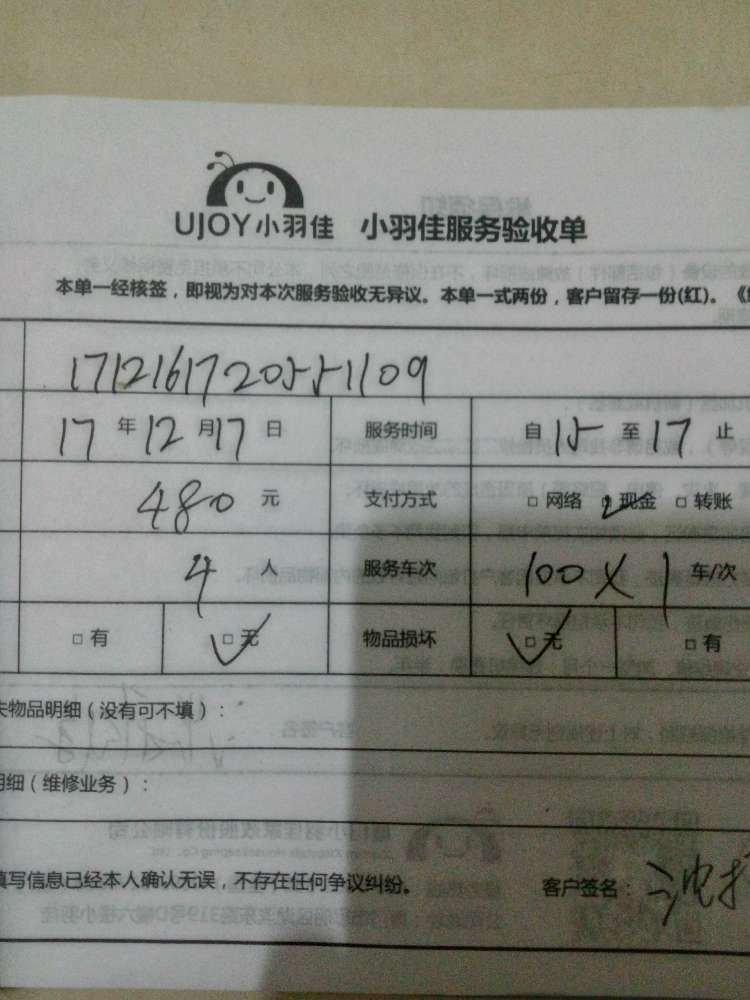 UJOY小羽佳 小羽佳服务验收单
本单一经核签，即视为对本次服务验收无异议。本单一式两份，客户留存一份(红)。《
17121617205551109
17 年 12 月 17 日 服务时间 自 15 至 17 止
480 元 支付方式 □ 网络 □ 现金 □ 转账
4 人 服务车次 100 X 1 车/次
□ 有 □ 无 物品损坏 □ 无 □ 有
失物品明细（没有可不填）：
明细（维修业务）：
填写信息已经本人确认无误，不存在任何争议纠纷。 客户签名：